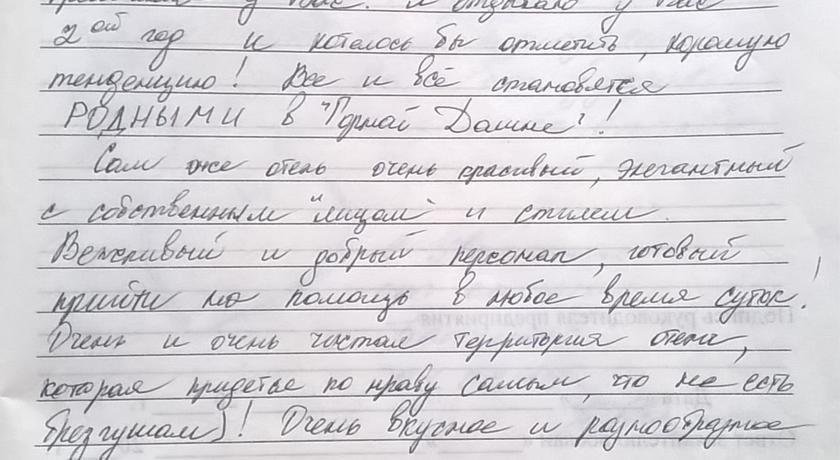 у Вас. Я отдыхаю у Вас
2ой год и хотелось бы отметить, хорошую
тенденцию! Все и всё становятся
РОДНЫМИ в "Горной Долине"!
Сам же отель очень красивый, элегантный
с собственным "лицом" и стилем.
Вежливый и добрый персонал, готовый
прийти на помощь в любое время суток!
Очень и очень чистая территория отеля,
которая придётся по нраву самым, что не есть
брезгушам)! Очень вкусное и разнообразное
Подпись руководителя предприятия
Дата